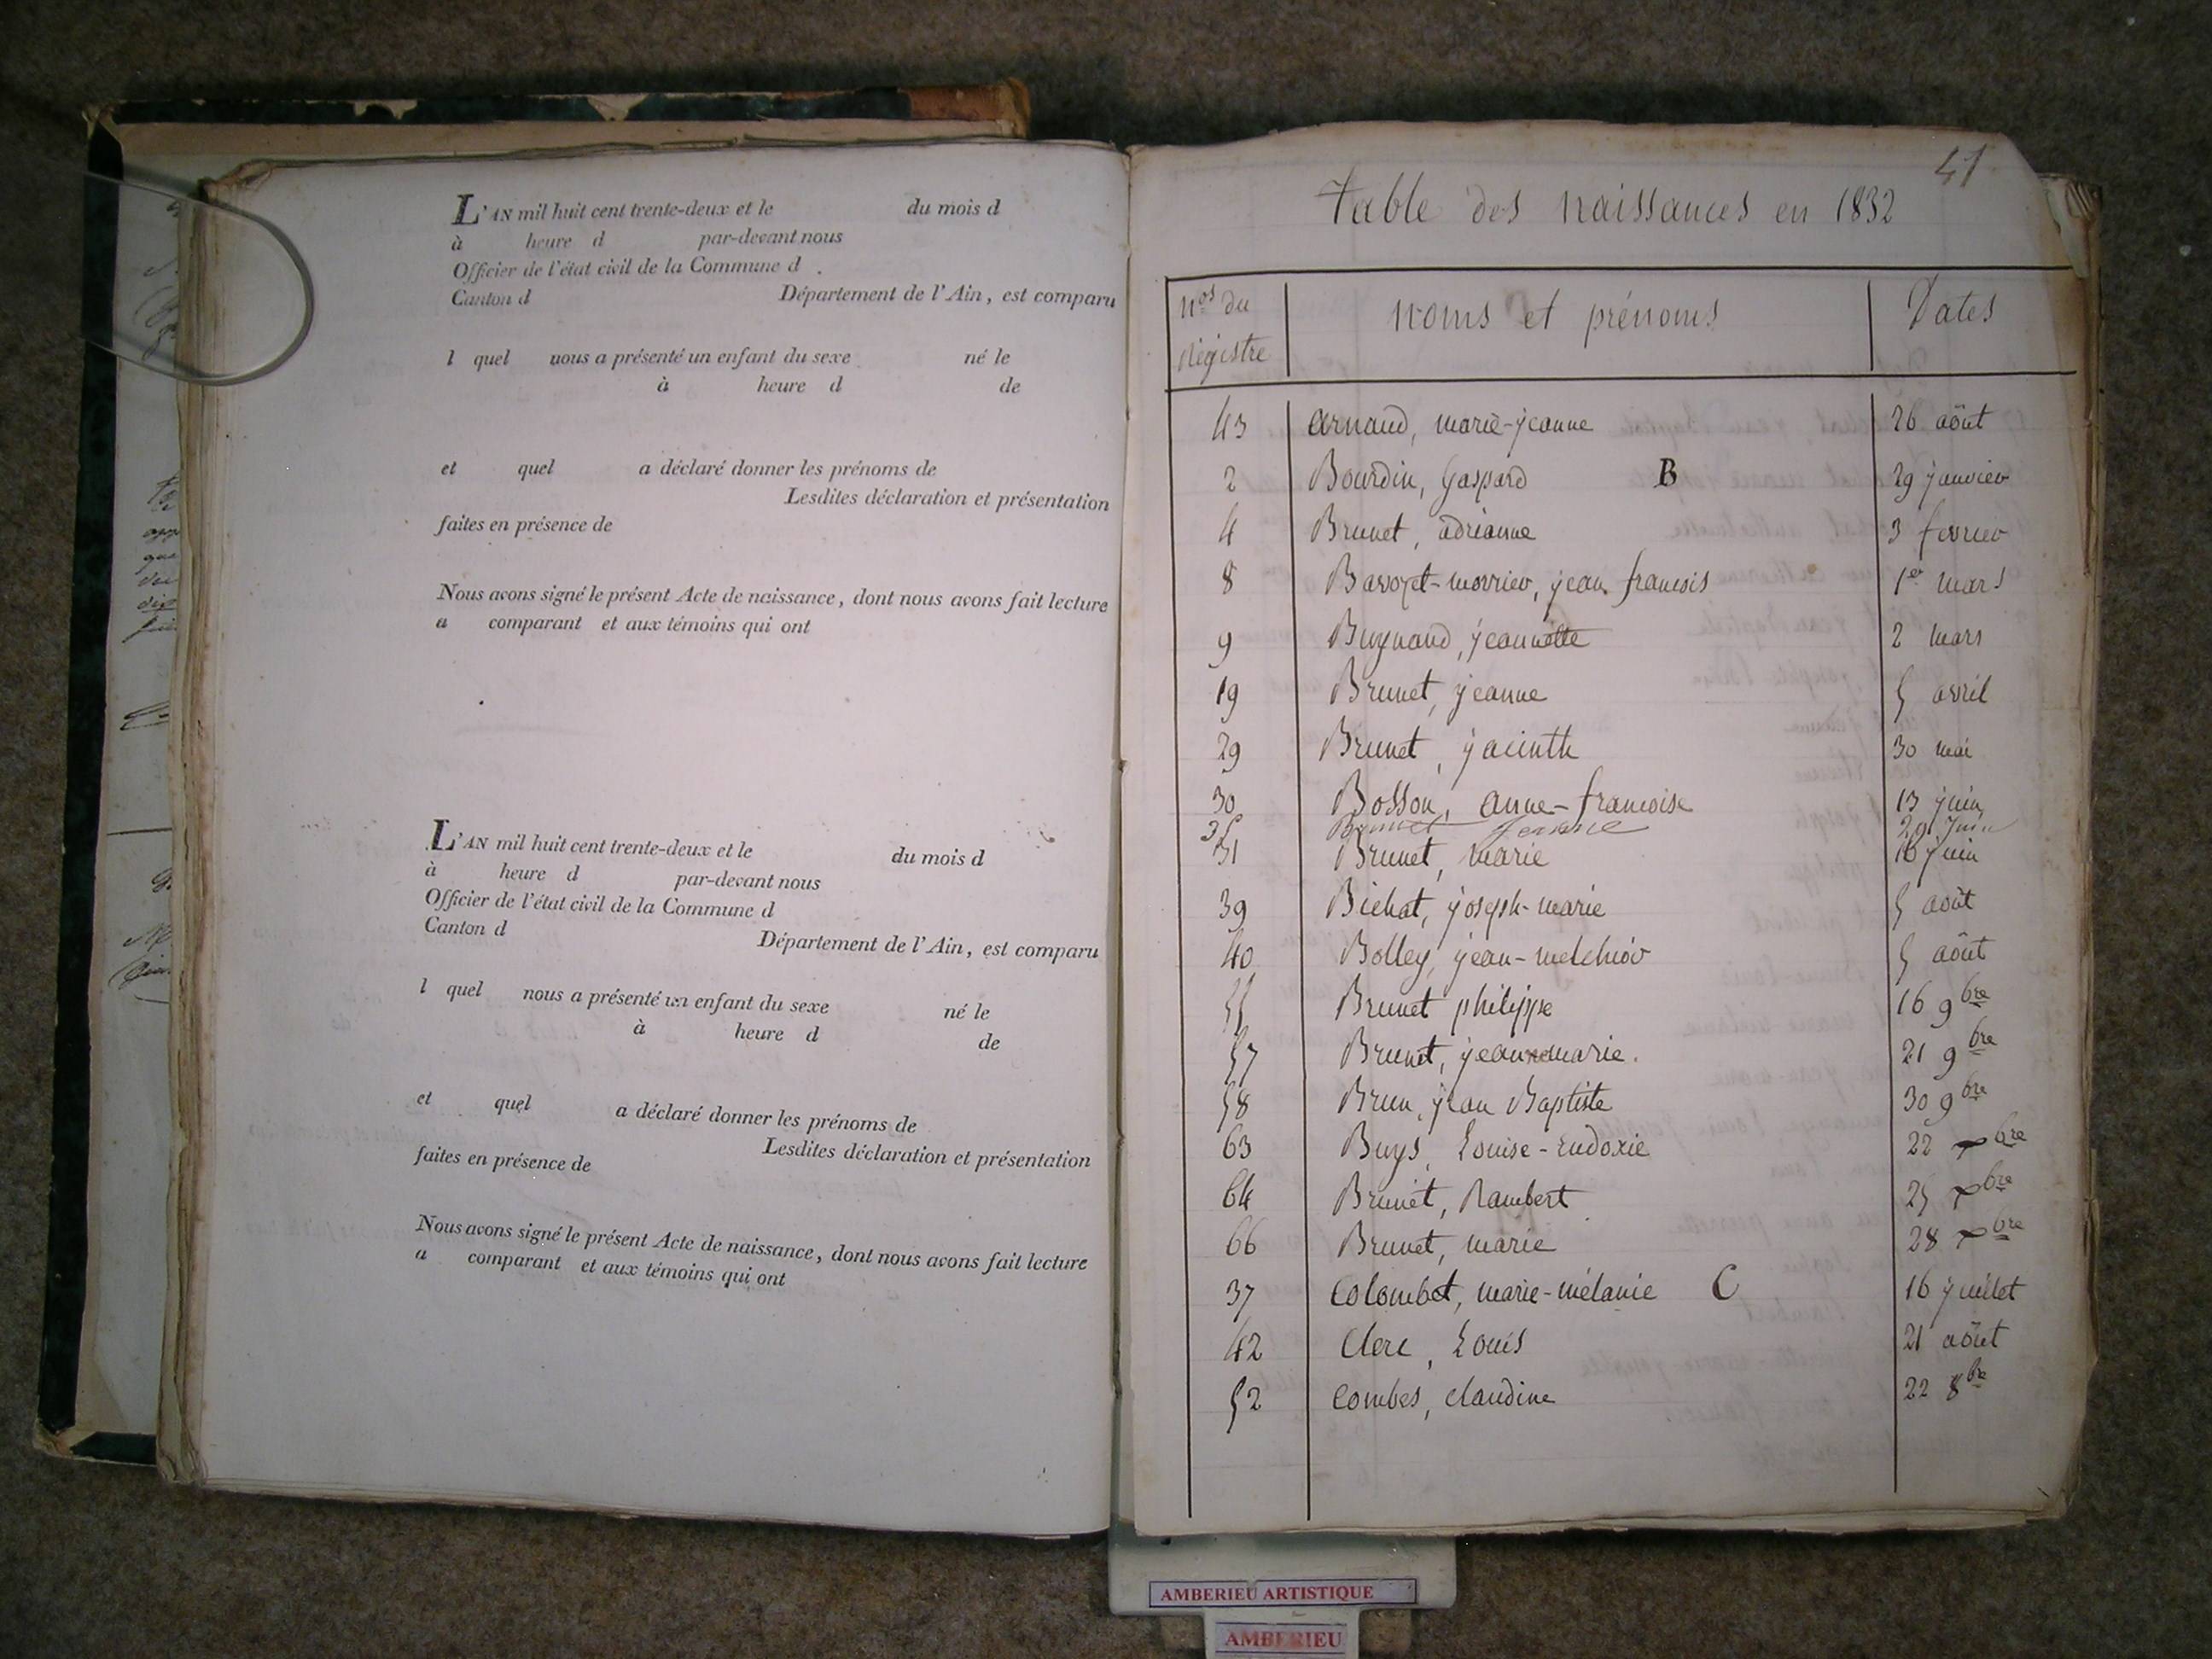 L'AN mil huit cent trente-deux et le du mois d
à heure d par-devant nous
Officier de l'état civil de la Commune d .
Canton d Département de l'Ain, est comparu
l quel nous a présenté un enfant du sexe né le
à heure d de
et quel a déclaré donner les prénoms de
Lesdites déclaration et présentation
faites en présence de
Nous avons signé le présent Acte de naissance, dont nous avons fait lecture
a comparant et aux témoins qui ont
L'AN mil huit cent trente-deux et le du mois d
à heure d par-devant nous
Officier de l'état civil de la Commune d
Canton d Département de l'Ain, est comparu
l quel nous a présenté un enfant du sexe né le
à heure d de
et quel a déclaré donner les prénoms de
Lesdites déclaration et présentation
faites en présence de
Nous avons signé le présent Acte de naissance, dont nous avons fait lecture
a comparant et aux témoins qui ont
41
Table des naissances en 1832
nos du Régistre noms et prénoms Dates
43 arnaud, marie-jeanne 26 août
2 Bourdin, gaspard B 29 janvier
4 Brunet, adrianne 3 fevrier
8 jean francois 1er mars
9 Buynand, jeannette 2 mars
19 Brunet, jeanne 5 avril
29 Brunet, jacinth 30 mai
30 Bosson, anne-francoise 13 juin
35 Brunet 29 Juin
31 Brunet, marie 16 juin
39 Bichat, joseph-marie 5 août
40 Bolley, jean-melchior 5 août
55 Brunet philippe 16 9bre
57 Brunet, jeanne marie. 21 9bre
58 Brun, jean Baptiste 30 9bre
63 Buys, Louise-Eudoxie 22 xbre
64 Brunet, Rambert 25 xbre
66 Brunet, marie 28 xbre
37 Colombet, marie-mélanie C 16 juillet
42 Clerc, Louis 21 août
52 Combes, claudine 22 8bre
AMBERIEU ARTISTIQUE
AMBERIEU